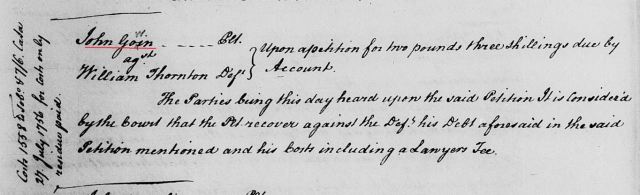 John Goin Plt.
agst
William Thornton Deft.
Upon a petition for two pounds three shillings due by
Account.
The Parties being this day heard upon the said Petition It is Consider'd
by the Court that the Plt recover against the Deft. his Debt aforesaid in the said
Petition mentioned and his Costs including a Lawyers Fee.
27. July 1756 for Costs only